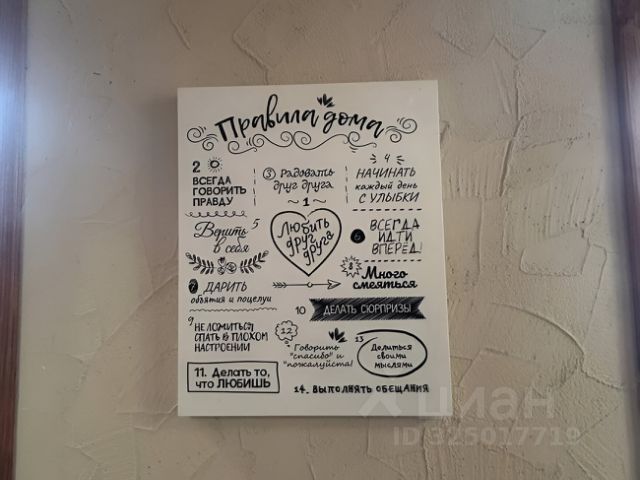 Правила дома
2
ВСЕГДА
ГОВОРИТЬ
ПРАВДУ
3 Радовать
друг друга
4
НАЧИНАТЬ
каждый день
С УЛЫБКИ
1
Любить
друг
друга
Верить 5
в себя
6 ВСЕГДА
ИДТИ
ВПЕРЕД!
7 ДАРИТЬ
объятия и поцелуи
8
Много
смеяться
9
НЕ ЛОЖИТЬСЯ
СПАТЬ В ПЛОХОМ
НАСТРОЕНИИ
10 ДЕЛАТЬ СЮРПРИЗЫ
12
Говорить
"спасибо" и
"пожалуйста!
13
Делиться
своими
мыслями
11. Делать то,
что ЛЮБИШЬ
14. ВЫПОЛНЯТЬ ОБЕЩАНИЯ
циан
ID 325017719